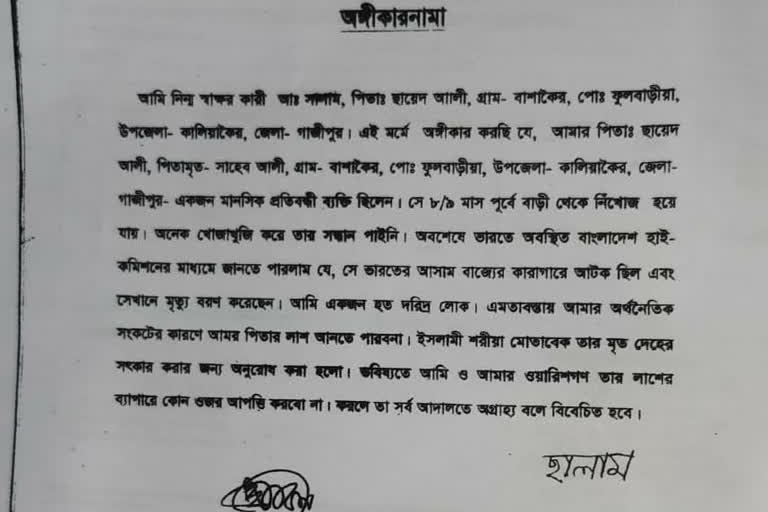 অঙ্গীকারনামা
আমি নিম্ন স্বাক্ষর কারী আঃ সালাম, পিতাঃ ছায়েদ আলী, গ্রাম- বাশাকৈর, পোঃ ফুলবাড়ীয়া,
উপজেলা- কালিয়াকৈর, জেলা- গাজীপুর। এই মর্মে অঙ্গীকার করছি যে, আমার পিতাঃ ছায়েদ
আলী, পিতামৃত- সাহেব আলী, গ্রাম- বাশাকৈর, পোঃ ফুলবাড়ীয়া, উপজেলা- কালিয়াকৈর, জেলা-
গাজীপুর- একজন মানসিক প্রতিবন্ধী ব্যক্তি ছিলেন। সে ৮/৯ মাস পূর্বে বাড়ী থেকে নিখোজ হয়ে
যায়। অনেক খোজাখুজি করে তার সন্ধান পাইনি। অবশেষে ভারতে অবস্থিত বাংলাদেশ হাই-
কমিশনের মাধ্যমে জানতে পারলাম যে, সে ভারতের আসাম রাজ্যের কারাগারে আটক ছিল এবং
সেখানে মৃত্যু বরণ করেছেন। আমি একজন হত দরিদ্র লোক। এমতাবস্তায় আমার অর্থনৈতিক
সংকটের কারণে আমর পিতার লাশ আনতে পারবনা। ইসলামী শরীয়া মোতাবেক তার মৃত দেহের
সৎকার করার জন্য অনুরোধ করা হলো। ভবিষ্যতে আমি ও আমার ওয়ারিশগণ তার লাশের
ব্যাপারে কোন ওজর আপত্তি করবো না। করলে তা সর্ব আদালতে অগ্রাহ্য বলে বিবেচিত হবে।
ছালাম